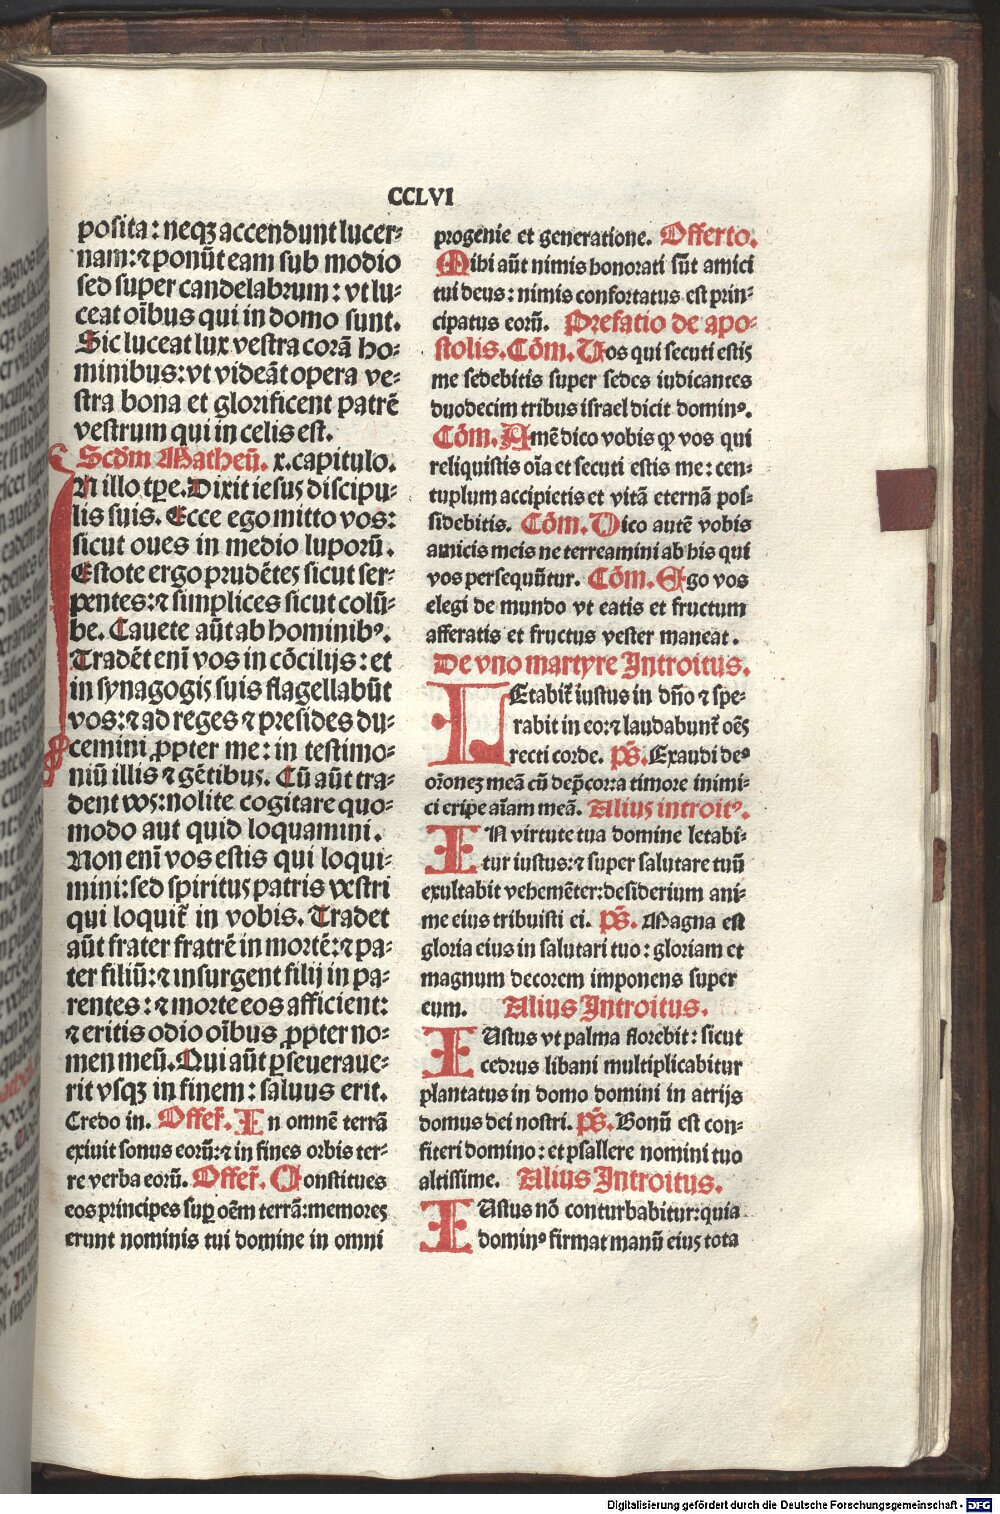 CCLVI
posita: neqȝ accendunt lucer-
nam: ⁊ ponūt eam sub modio
sed super candelabrum: vt lu-
ceat oībus qui in domo sunt.
Sic luceat lux vestra corā ho-
minibus: vt videāt opera ve-
stra bona et glorificent patrē
vestrum qui in celis est.
Scd̄m Matheū. x. capitulo.
IN illo tp̄e. Dixit iesus discipu-
lis suis. Ecce ego mitto vos:
sicut oues in medio luporū.
Estote ergo prudētes sicut ser-
pentes: ⁊ simplices sicut colū-
be. Cauete aūt ab hominibꝰ.
Tradēt enī vos in cōcilijs: et
in synagogis suis flagellabūt
vos: ⁊ ad reges ⁊ presides du-
cemini ꝓpter me: in testimo-
niū illis ⁊ gētibus. Cū aūt tra-
dent vos: nolite cogitare quo-
modo aut quid loquamini.
Non enī vos estis qui loqui-
mini: sed spiritus patris vestri
qui loquit᷑ in vobis. Tradet
aūt frater fratrē in mortē: ⁊ pa-
ter filiū: ⁊ insurgent filij in pa-
rentes: ⁊ morte eos afficient:
⁊ eritis odio oībus ꝓpter no-
men meū. Qui aūt ꝑseuerаue-
rit vsqȝ in finem: saluus erit.
Credo in. Offer̄. In omnē terrā
exiuit sonus eorū: ⁊ in fines orbis ter-
re verba eorū. Offer̄. Constitues
eos principes suꝑ oēm terrā: memores
erunt nominis tui domine in omni
progenie et generatione. Offerto.
Mihi aūt nimis honorati sūt amici
tui deus: nimis confortatus est prin-
cipatus eorū. Prefatio de apo-
stolis. Cōm. Vos qui secuti estis
me sedebitis super sedes iudicantes
duodecim tribus israel dicit dominꝰ.
Cōm. Amē dico vobis ꝙ vos qui
reliquistis oīa et secuti estis me: cen-
tuplum accipietis et vitā eternā pos-
sidebitis. Cōm. Dico autē vobis
amicis meis ne terreamini ab his qui
vos persequūtur. Cōm. Ego vos
elegi de mundo vt eatis et fructum
afferatis et fructus vester maneat.
De vno martyre Introitus.
LEtabit᷑ iustus in dn̄o ⁊ spe-
rabit in eo: ⁊ laudabunt᷑ oēs
recti corde. ps̄. Exaudi deꝰ
or̄onez meā cū dep̄cor: a timore inimi-
ci eripe aīam meā. Alius introitꝰ.
IN virtute tua domine letabi-
tur iustus: ⁊ super salutare tuū
exultabit vehemēter: desiderium ani-
me eius tribuisti ei. ps̄. Magna est
gloria eius in salutari tuo: gloriam et
magnum decorem imponens super
eum. Alius Introitus.
IUstus vt palma florebit: sicut
cedrus libani multiplicabitur
plantatus in domo domini in atrijs
domus dei nostri. ps̄. Bonū est con-
fiteri domino: et psallere nomini tuo
altissime. Alius Introitus.
IUstus nō conturbabitur: quia
dominꝰ firmat manū eius tota
Digitalisierung gefördert durch die Deutsche Forschungsgemeinschaft - DFG